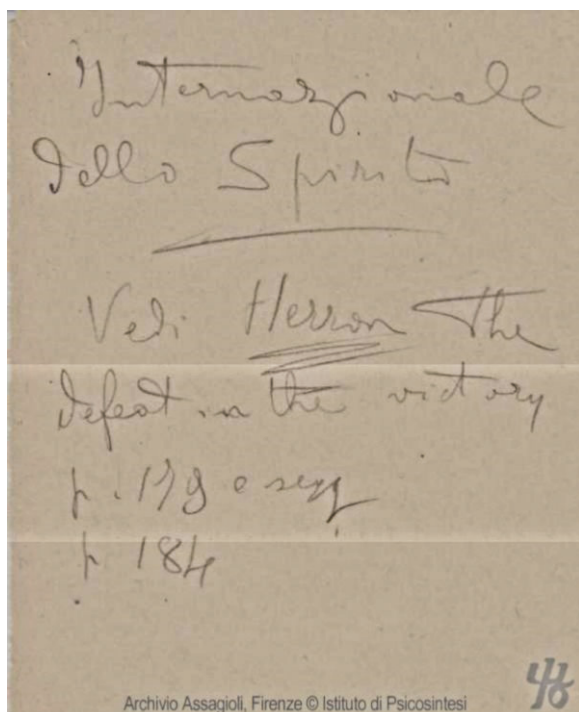 Internazionale
dello Spirito
Vedi Herron The
defeat in the victory
p. 179 e segg
p 184
Archivio Assagioli, Firenze © Istituto di Psicosintesi